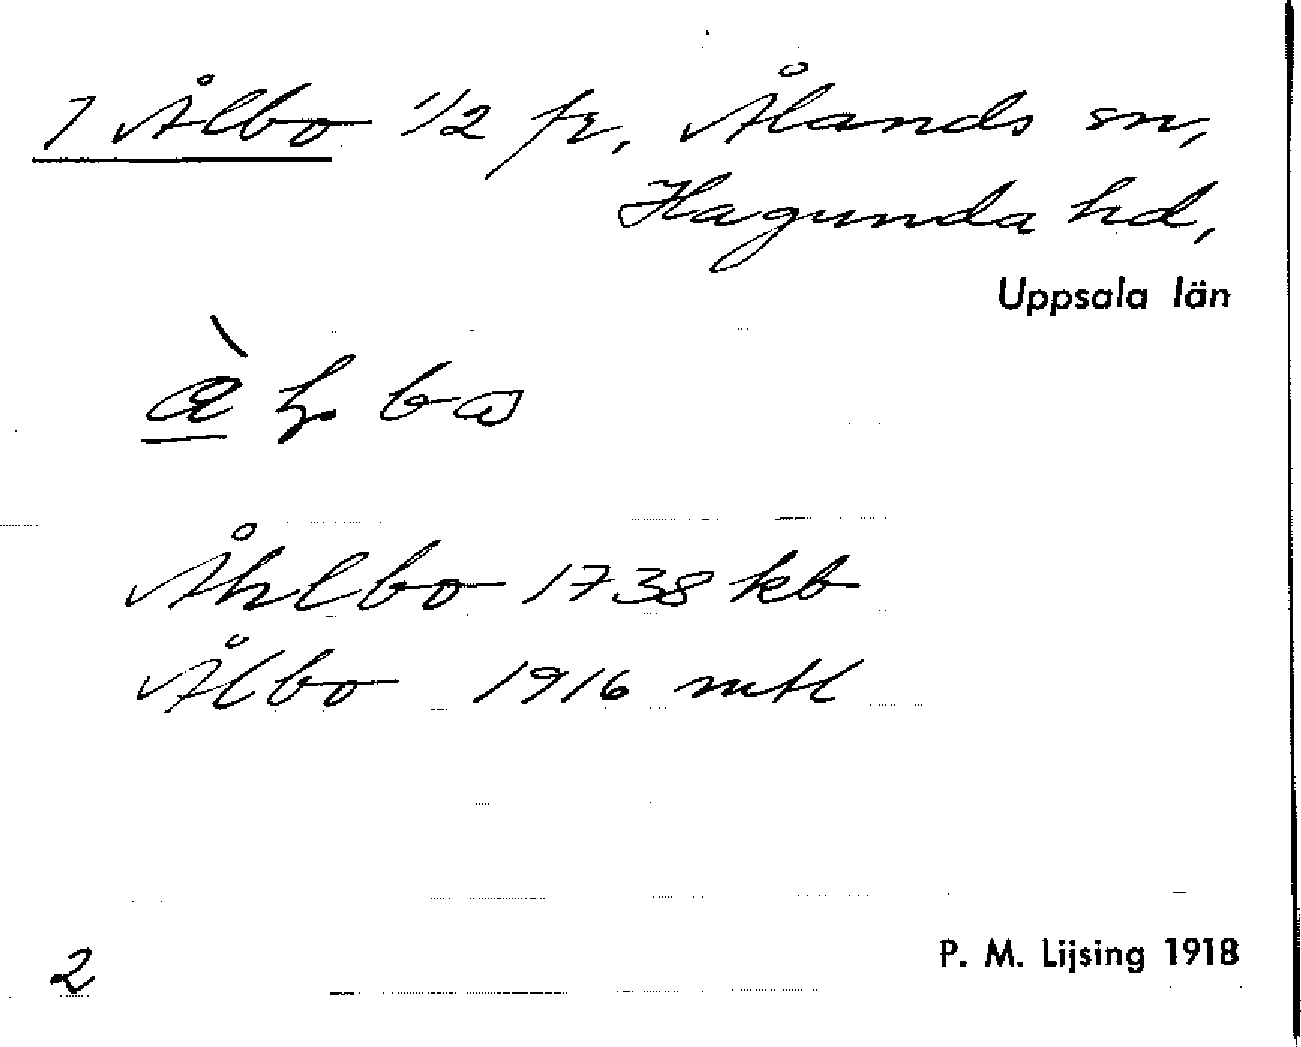 7 Ålbo 1/2 fr, Ålands sn,
Hagunda hd,
Uppsala län
Åhlbo 1738 kb
Ålbo 1916 mtl
2
P. M. Lijsing 1918